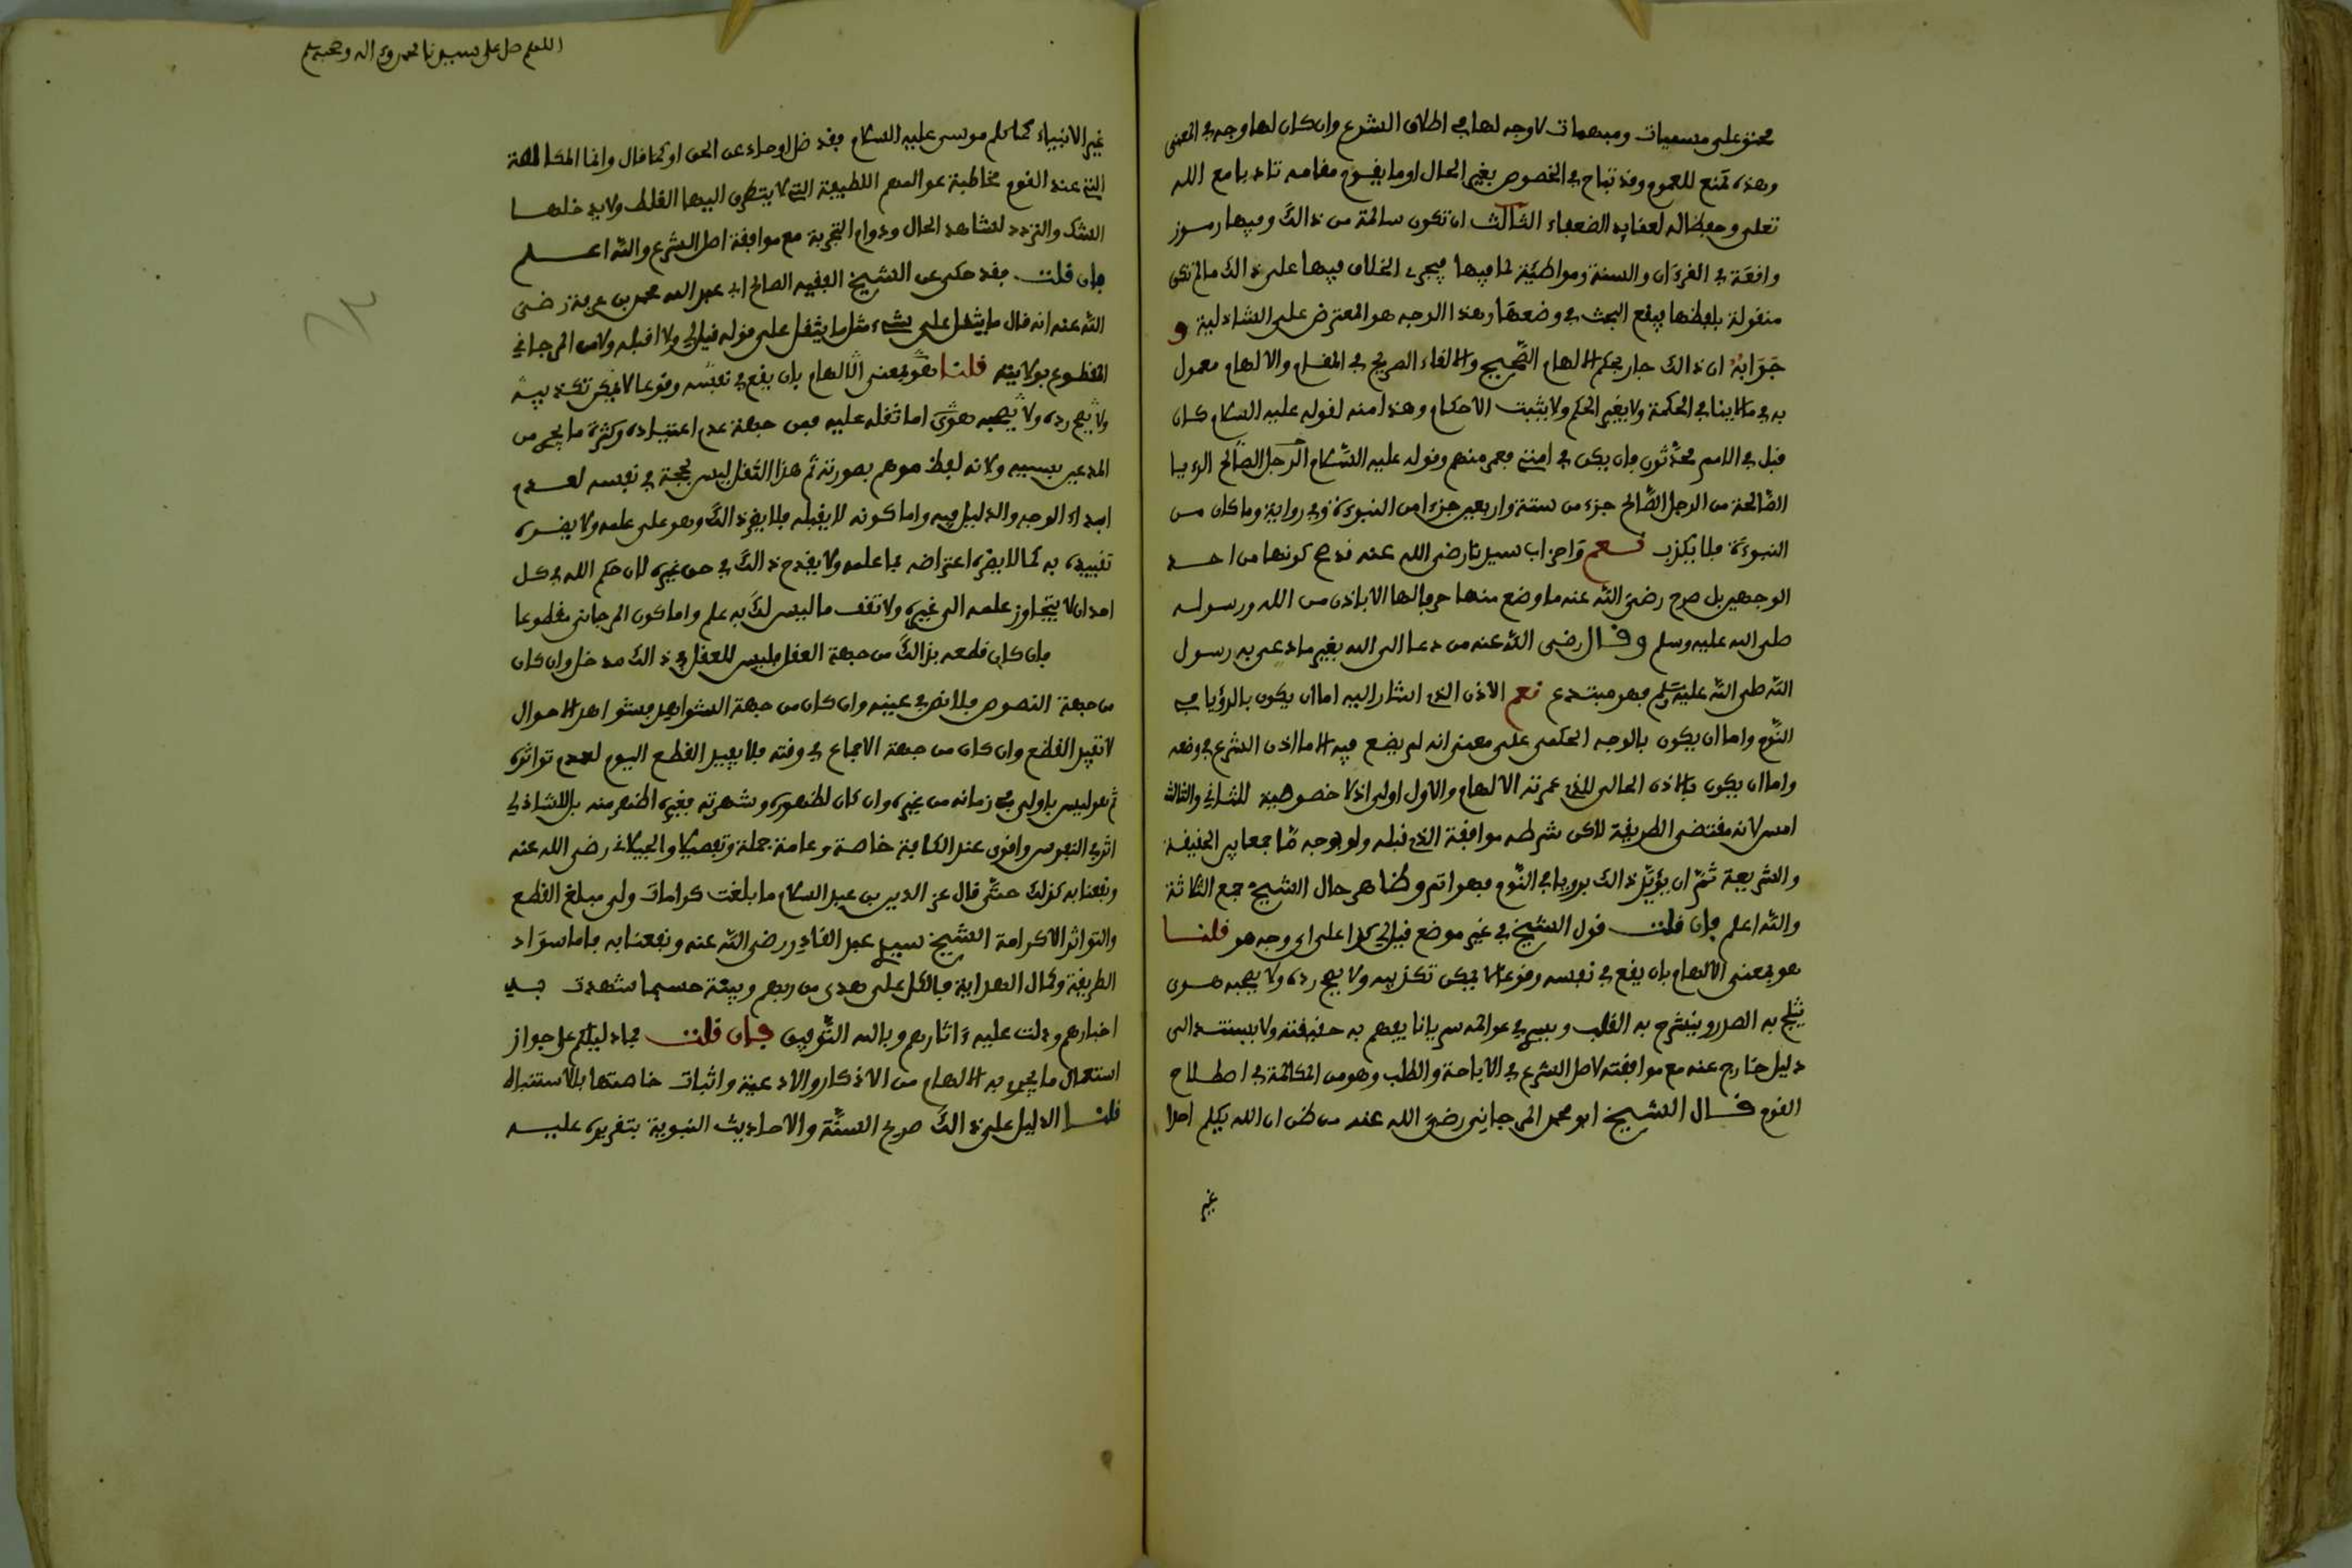 محتو على مسميات ومبهمات لا وجه لها في اطلاق الشرع وان كان لها وجه في المعنى
وهذه تمنع للعموم وقد تباح في الخصوص بغير الحال او ما يقوم مقامه تادبا مع الله
تعلى وحفظا له لعقايد الضعفاء الثالث ان تكون سالمة من ذالك وفيها رموز
واقعة في القرءان والسنة ومواطئة لما فيها فيجرى الخلاف فيها على ذالك مالم تكن
منقولة بلفظها فيقع البحث في وضعها وهذا الوجه هو المعترض على الشاذلية و
جوابه ان ذالك جار بحكم الالهام الصحيح والالقاء الصريح في المقام والالهام معمول
به في ما لا ينافي الحكمة ولا يغير الحكم ولا يثبت الاحكام وهذا منه لقوله عليه السلام كان
قبل في الامم محدثون فان يكن في امتي فعمر منهم وقوله عليه السلام الرجل الصالح الرءيا
الصالحة من الرجل الصالح جزء من ستة واربعين جزءا من النبوءة وفي رواية وما كان من
النبوءة فلا يكذب نعم واحزاب سيدنا رضى الله عنه قد صح كونها من احد
الوجهين بل صرح رضى الله عنه ما وضع منها حرفا الا باذن من الله ورسوله
صلى الله عليه وسلم وقال رضى الله عنه من دعا الى الله بغير ما دعى به رسول
الله صلى الله عليه وسلم فهو مبتدع نعم الاذن الذي اشار اليه اما ان يكون بالرؤيا في
النوم واما ان يكون بالوجه الحكمى على معنى انه لم يضع فيه الا ما اذن الشرع في وضعه
واما ان يكون بالاذن الحالى الذي عمرته الالهام والاول اولى اذ لا خصوصية للثاني والثالث
امس لانه مقتضى الطريقة لاكن شرطه موافقة الذي قبله ولو بوجه ما جمعا بين الحقيقة
والشريعة ثم ان يؤيد ذالك برويا في النوم فهو اتم وظاهر حال الشيخ جمع الثلاثة
والله اعلم فان قلت قول الشيخ في غير موضع قيل لي كذا على اي وجه هو قلنا
هو بمعنى الالهام بان يقع في نفسه وقوعا لا يمكن تكذيبه ولا يصح رده ولا يصحبه هوى
يثلج به الصدر وينشرح به القلب ويسري في عوالمه سريانا يفهم به حقيقته ولا يستند الى
دليل خارج عنه مع موافقته لاصل الشرع في الاباحة والطلب وهو من المكالمة في اصطلاح
القوم قال الشيخ ابو محمد المرجاني رضى الله عنه من ظن ان الله يكلم احدا
غير
اللهم صل على سيدنا محمد وءاله وصحبه وسلم
غير الانبياء كما كلم موسى عليه السلام فقد ضل او حاد عن الحق او كما قال وانما المكالمة
التي عند القوم مخاطبة عوالمهم اللطيفة التي لا يتطرق اليها الغلط ولا يدخلها
الشك والتردد لشاهد الحال ودوام التجربة مع موافقة اصل الشرع والله اعلم
فان قلت فقد حكى عن الشيخ الفقيه الصالح ابي عبد الله محمد بن عرفة رضى
الله عنه انه قال ما يثقل على شيء مثل ما يثقل على قوله قيل لي ولا اقبله ولا من المرجاني
المقطوع بولايته قلنا هو بمعنى الالهام بان يقع في نفسه وقوعا لا يمكن تكذيبه
ولا يصح رده ولا يصحبه هوى اما ثقله عليه فمن جهة عدم اعتياده وكثرة ما يجري من
المدعين بسببه ولانه لفظ موهم بصورته ثم هذا الثقل ليس بحجة في نفسه لعدم
ابداء الوجه والدليل فيه واما كونه لا يقبله فلا يضر ذالك وهو على علمه ولا يضره
تقييده به كما لا يضره اعتراضه بما علمه ولا يقدح ذالك في حق غيره لان حكم الله في كل
احد ان لا يتجاوز علمه الى غيره ولا تقف ما ليس لك به علم واما كون المرجاني مقطوعا
فان كان قطعه بذالك من جهة العقل فليس للعقل في ذالك مدخل وان كان
من جهة النصوص فلا نص في عينه وان كان من جهة الشواهد فشواهد الاحوال
لا تفيد القطع وان كان من جهة الاجماع في وقته فلا يفيد القطع اليوم لعدم تواتره
ثم هو ليس باولى في زمانه من غيره وان كان لظهوره وشهرته فغيره اظهر منه بل الشاذلي
اثر في النفوس واقوى عند الكافة خاصة وعامة جملة وتفصيلا والجيلاني رضى الله عنه
ونفعنا به كذلك حتى قال عز الدين بن عبد السلام ما بلغت كرامات ولي مبلغ القطع
والتواتر الا كرامة الشيخ سيدي عبد القادر رضى الله عنه ونفعنا به فاما سواد
الطريقة وكمال الهداية فالكل على هدى من ربهم وبينة حسبما شهدت به
اخبارهم ودلت عليه ءاثارهم وبالله التوفيق فان قلت فما دليلكم على جواز
استعمال ما يجري به الالهام من الاذكار والادعية واثبات خاصتها بالاستنباط
قلنا الدليل على ذالك صريح السنة والاحاديث النبوية بتقريره عليه